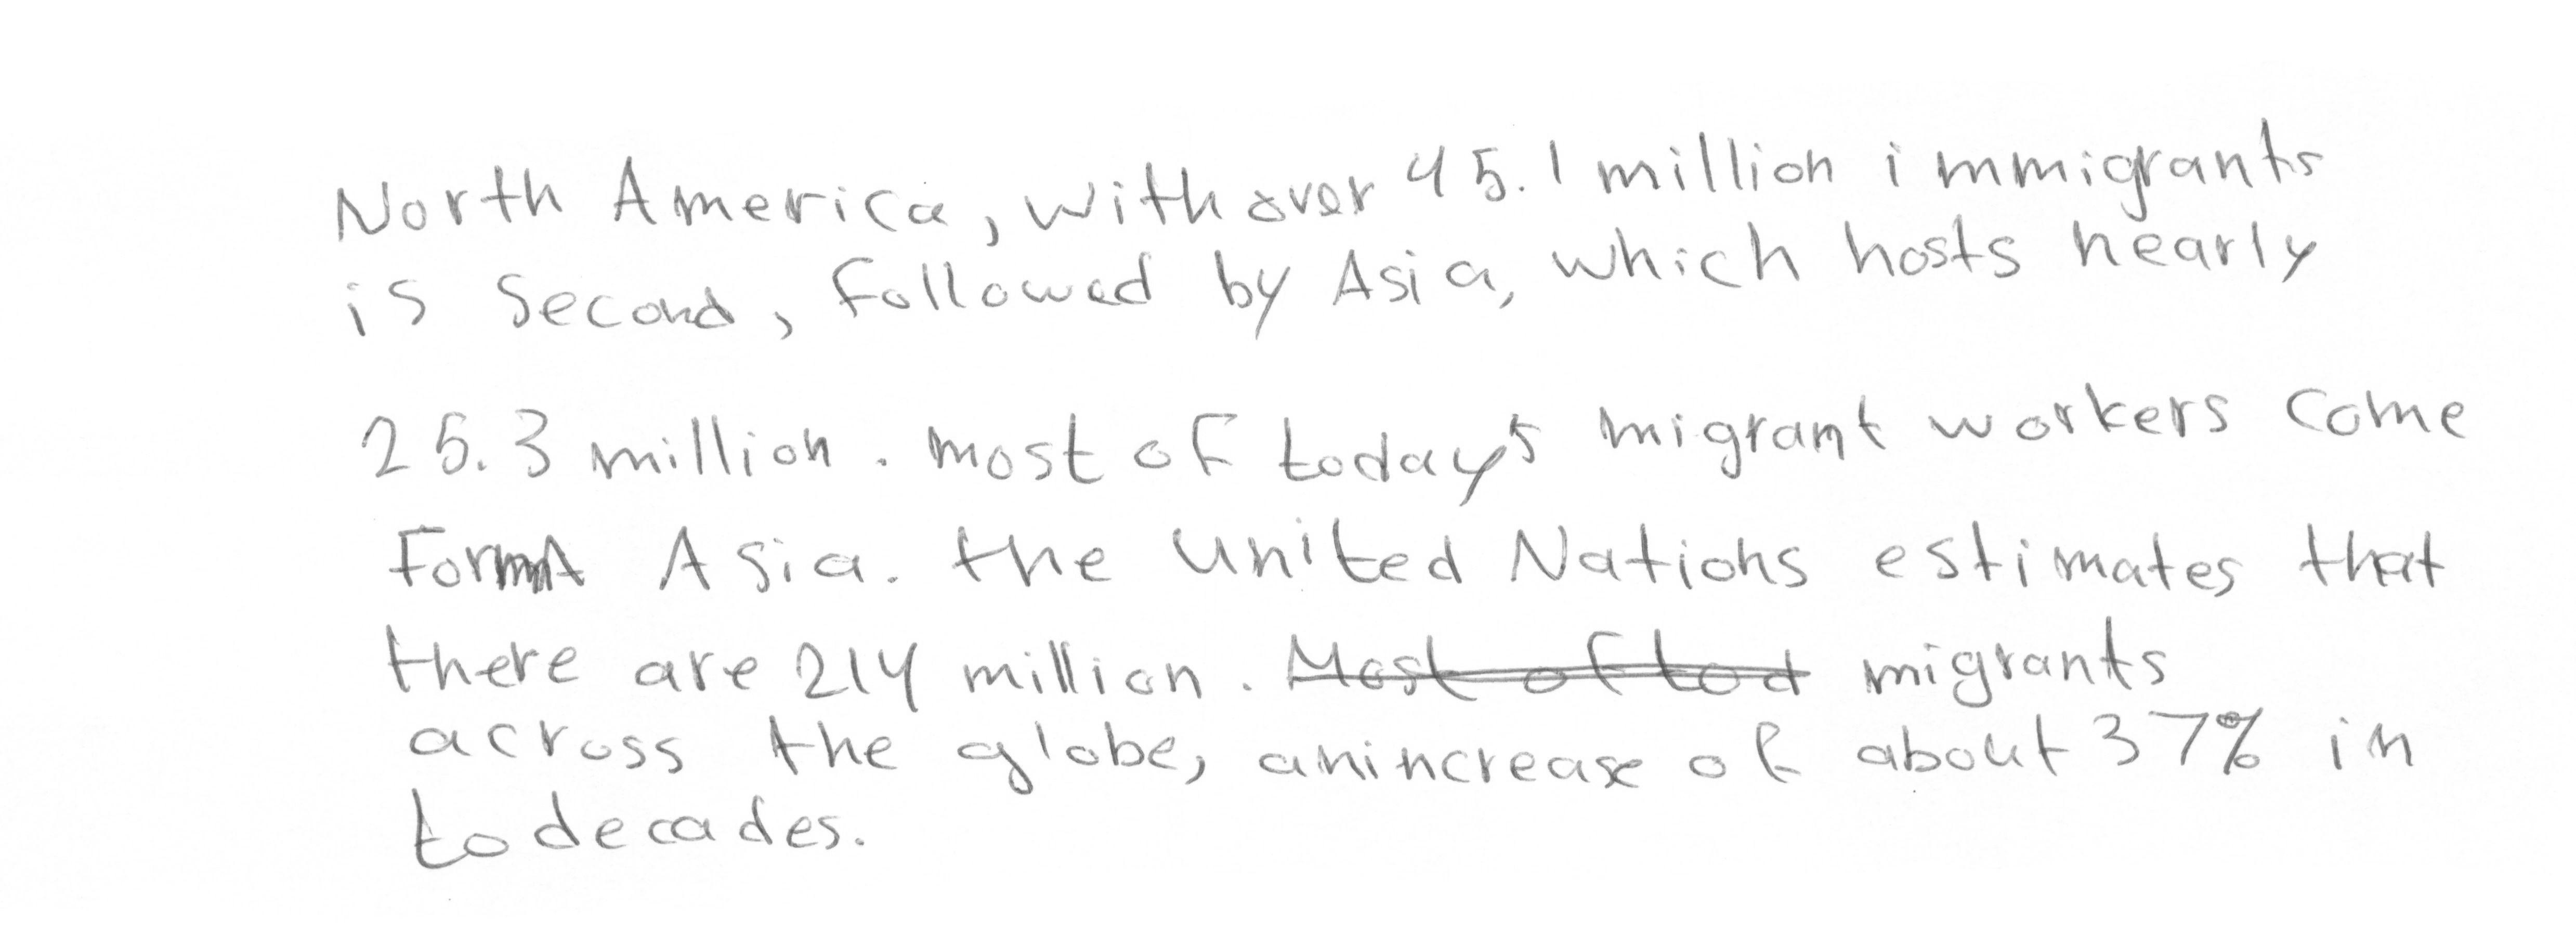 North America, with over 45.1 million immigrants
is second, followed by Asia, which hosts nearly
25.3 million. most of today's migrant workers come
Form Asia. the united Nations estimates that
there are 214 million. Most of tod migrants
across the globe, an increase of about 37% in
to decades.